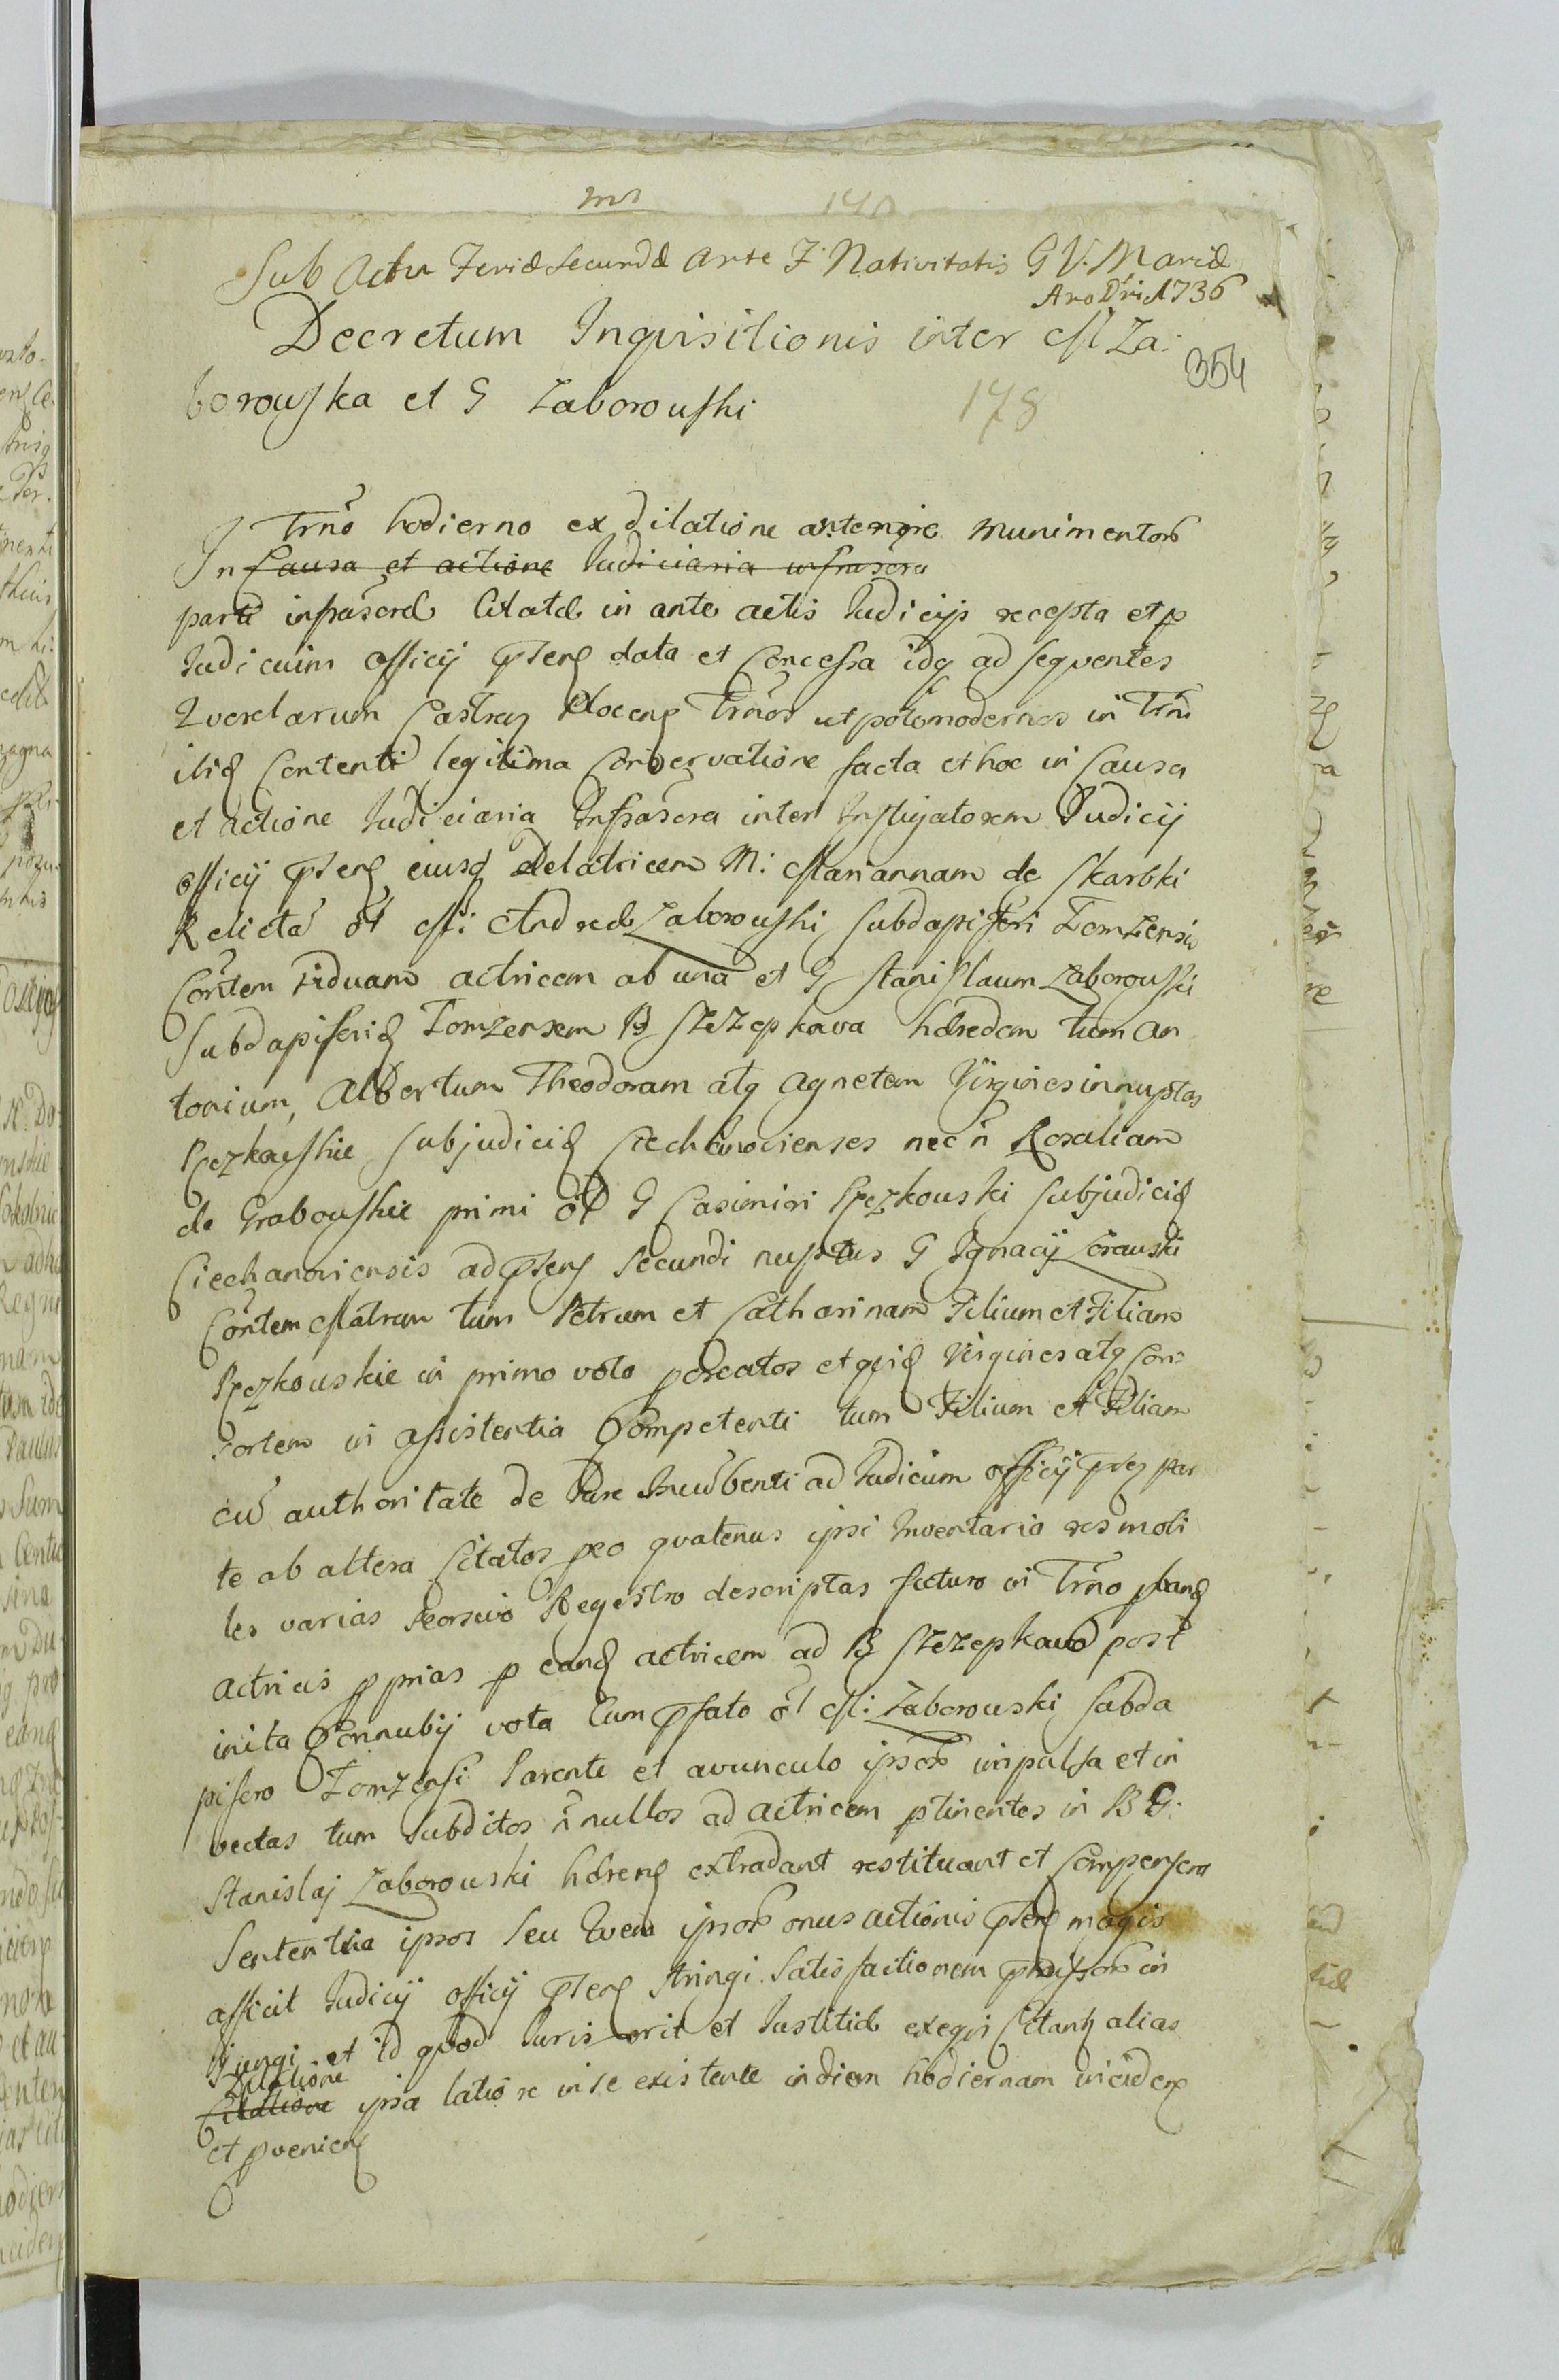 Sub Actu Feriæ Secundæ Ante F. Nativitatis G V. Mariæ
Ano Dni 1736
354
Decretum Inquisitionis inter M Za:
borowska et G Zaborowski
178
In Trno hodierno ex dilatione munimentor
Causa et actione Judiciaria infrascra
parti infrascræ Citatæ in ante actis Judicijs recepta et p
Judicium officij pteng data et Concessa idq ad sequentes
Querelarum Castren Plocens Trnos utpote modernos in Trno
Contenti legitima Conservatione facta et hoc in Causa
et actione Judiciaria Infrascra inter Instigatorem Judicij
officij pteng eiusq Delatricem M: Mariannam de Skarbki
Relictã ol M: Andreæ Zaborowski Subdapiferi Lomzensis
Cortem Viduam actricem ab una et G Stanislaum Zaborowski
Subdapiferid Lomzensem B Szczepkowa hæredem tum An
tonium, Albertum Theodoram atq Agnetem Virgines innuptas
Rzezkowskie Subjudicid Ciechanocienses nec ñ Rosaliam
de Grabowskie primi ol G Casimiri Rzezkowski Subjudicid
Ciechanoviensis ad pteng Secundi nuptus G Ignacij
Cortem Matrem tum Petrum et Catharinam Filium et Filiam
Rzezkowskie in primo voto pcreatos et Virgines atq Con
sortem in assistentia Competenti tum Filium et Filiam
cũ authoritate de Jure Incũbenti ad Judicium officij ptes par
te ab altera Citatos peo quatenus ipsi Inventaria res mobi
les varias Seorsivo Regestro descriptas
actricis pprias p eand actricem ad B Szczepkowo post
inita Connubij vota Cum pfato ol M: Zaborowski Subda
pifero Lomzensi Parente et avunculo ipsor impulsa et in
vectas tum Subditos ñ nullos ad actricem ptinentes in B G.
Stanislaj Zaborowski hæreng extradant restituant et
Sententia ipsos Seu Quem ipsor onus actionis pteng magis
afficit Judicij officij pteng Stringi Satisfactionem in
Jungi et id quod Juris erit et Justitiæ exequi Citans alias
Dilatione
Citatione ipsa latiore in se existente in diem hodiernam inciden
et pvenien